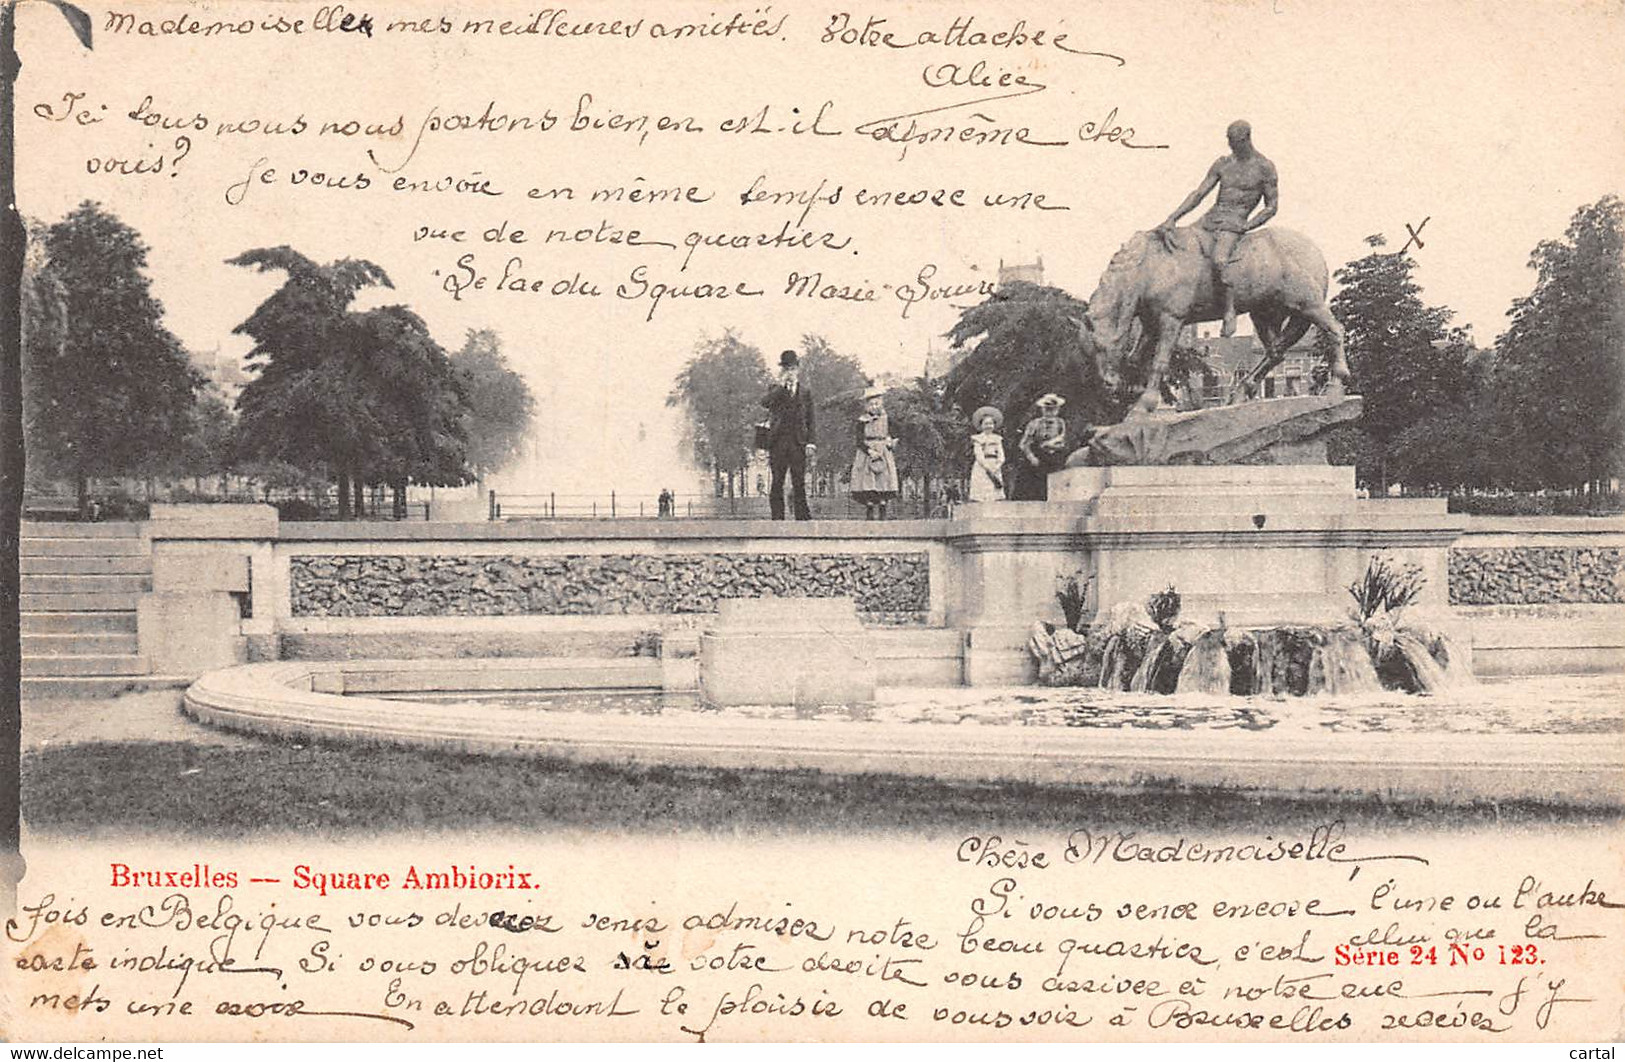 Mademoiselle mes meilleures amitiés. Votre attachée
Alice
Ici tous nous nous portons bien, en est-il de même chez
vous? Je vous envoie en même temps encore une
vue de notre quartier.
Le lac du Square Marie-Louise
X
Chère Mademoiselle,
Bruxelles — Square Ambiorix.
Si vous venez encore l'une ou l'autre
fois en Belgique vous devriez venir admirer notre beau quartier, c'est celui que la
carte indique, Si vous obliquez sur votre droite vous arrivez à notre rue j'y
Série 24 No 123.
mets une croix En attendant le plaisir de vous voir à Bruxelles recevez
cartal